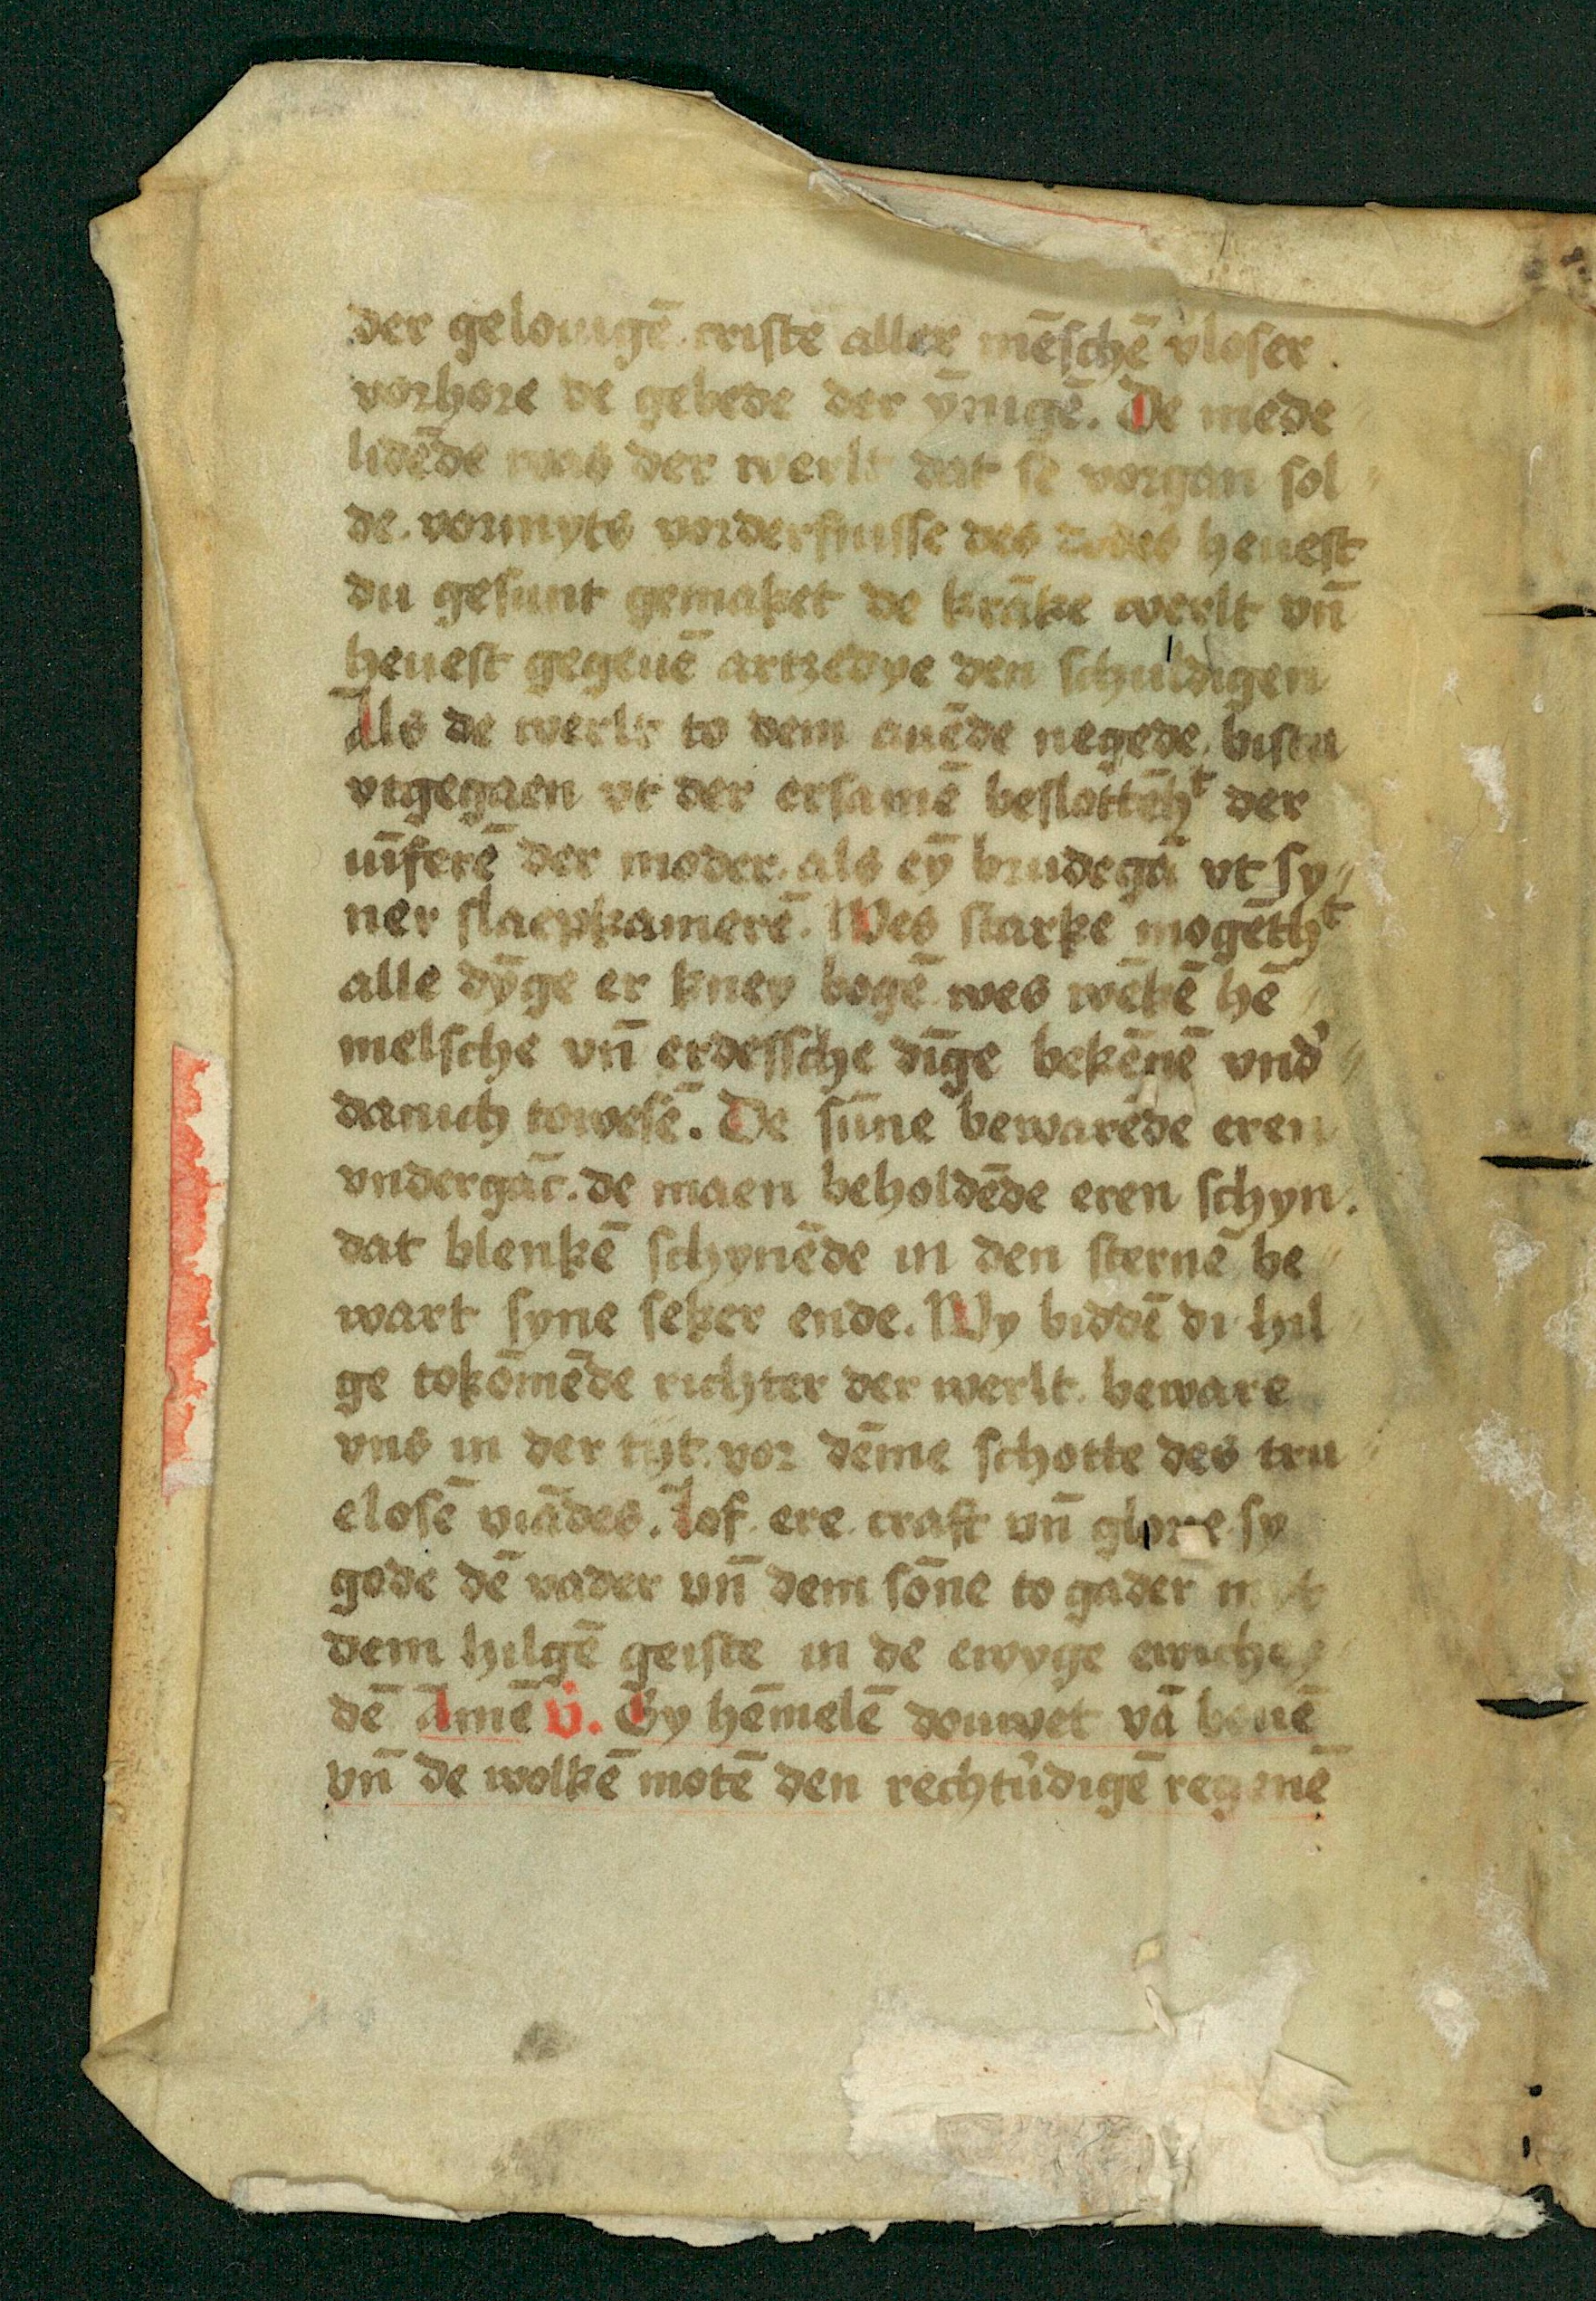 der gelouigē cristē aller mēschē vloser.
vorhore de gebede der ȳnigē. De mede
lidēde was der werlt dat se vorgan sol
de. vormyts vorderfnisse des dodes heuest
du gesunt gemaket de krāke werlt vn̄
heuest gegeuē artzedye den schuldigen
Als de werlt to dem auēde negede. bistu
vtgegaen vt der ersamē beslottēhᵗ der
iūferē der moder. als eȳ brudegā vt sy
ner slaepkamerē. Wes starke mogēthᵗ
alle dȳge er kney bogē wes wēkē hē
melsche vn̄ erdessche dīge bekēnē vnd'
danich towesē. De sūne bewarēde eren
vndergāc. de maen beholdēde eren schyn.
dat blenkē schynēde in den sternē be
wart syne seker ende. Wy biddē di hil
ge tokōmēde richter der werlt. beware
vns in der tijt. vor dēme schotte des tru
elosē viādes. Lof. ere. craft vn̄ glorie sy
gode dē vader vn̄ dem sōne to gader myt
dem hilgē geiste in de ewyge ewichey
dē Amē v. Gy hēmelē douwet vā bouē
vn̄ de wolkē motē den rechtu'digē regenē